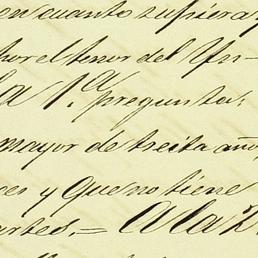 on cuanto supiera y
por el tenor del Yn-
la 1.ª pregunta:
mayor de treita año,
ces y que no tiene
artes.= A la 2